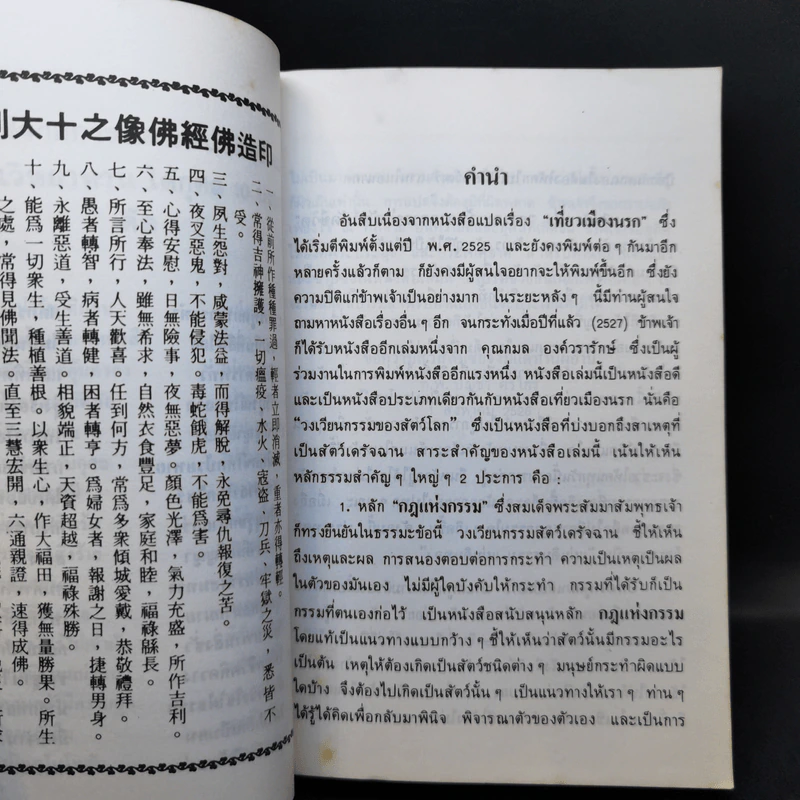 印造佛經佛像之十大利
一、從前所作種種罪過，輕者立即消滅，重者亦得轉輕。
二、常得吉神擁護，一切瘟疫、水火、寇盜、刀兵、牢獄之災，悉皆不
受。
三、夙生怨對，咸蒙法益，而得解脫，永免尋仇報復之苦。
四、夜叉惡鬼，不能侵犯。毒蛇餓虎，不能為害。
五、心得安慰，日無險事，夜無惡夢。顏色光澤，氣力充盛，所作吉利。
六、至心奉法，雖無希求，自然衣食豐足，家庭和睦，福祿緜長。
七、所言所行，人天歡喜。任到何方，常為多衆傾城愛戴，恭敬禮拜。
八、愚者轉智，病者轉健，困者轉亨。為婦女者，報謝之日，捷轉男身。
九、永離惡道，受生善道。相貌端正，天資超越，福祿殊勝。
十、能為一切衆生，種植善根。以衆生心，作大福田，獲無量勝果。所生
之處，常得見佛聞法。直至三慧宏開，六通親證，速得成佛。
คำนำ
อันสืบเนื่องจากหนังสือแปลเรื่อง “เที่ยวเมืองนรก” ซึ่ง
ได้เริ่มตีพิมพ์ตั้งแต่ปี พ.ศ. 2525 และยังคงพิมพ์ต่อ ๆ กันมาอีก
หลายครั้งแล้วก็ตาม ก็ยังคงมีผู้สนใจอยากจะให้พิมพ์ขึ้นอีก ซึ่งยัง
ความปิติแก่ข้าพเจ้าเป็นอย่างมาก ในระยะหลัง ๆ นี้มีท่านผู้สนใจ
ถามหาหนังสือเรื่องอื่น ๆ อีก จนกระทั่งเมื่อปีที่แล้ว (2527) ข้าพเจ้า
ก็ได้รับหนังสืออีกเล่มหนึ่งจาก คุณกมล องค์วรารักษ์ ซึ่งเป็นผู้
ร่วมงานในการพิมพ์หนังสืออีกแรงหนึ่ง หนังสือเล่มนี้เป็นหนังสือดี
และเป็นหนังสือประเภทเดียวกันกับหนังสือเที่ยวเมืองนรก นั่นคือ
“วงเวียนกรรมของสัตว์โลก” ซึ่งเป็นหนังสือที่บ่งบอกถึงสาเหตุที่
เป็นสัตว์เดรัจฉาน สาระสำคัญของหนังสือเล่มนี้ เน้นให้เห็น
หลักธรรมสำคัญ ๆ ใหญ่ ๆ 2 ประการ คือ :
1. หลัก “กฎแห่งกรรม” ซึ่งสมเด็จพระสัมมาสัมพุทธเจ้า
ก็ทรงยืนยันในธรรมะข้อนี้ วงเวียนกรรมสัตว์เดรัจฉาน ชี้ให้เห็น
ถึงเหตุและผล การสนองตอบต่อการกระทำ ความเป็นเหตุเป็นผล
ในตัวของมันเอง ไม่มีผู้ใดบังคับให้กระทำ กรรมที่ได้รับก็เป็น
กรรมที่ตนเองก่อไว้ เป็นหนังสือสนับสนุนหลัก กฎแห่งกรรม
โดยแท้เป็นแนวทางแบบกว้าง ๆ ชี้ให้เห็นว่าสัตว์นั้นมีกรรมอะไร
เป็นต้น เหตุให้ต้องเกิดเป็นสัตว์ชนิดต่าง ๆ มนุษย์กระทำผิดแบบ
ใดบ้าง จึงต้องไปเกิดเป็นสัตว์นั้น ๆ เป็นแนวทางให้เรา ๆ ท่าน ๆ
ได้รู้ได้คิดเพื่อกลับมาพินิจ พิจารณาตัวของตัวเอง และเป็นการ